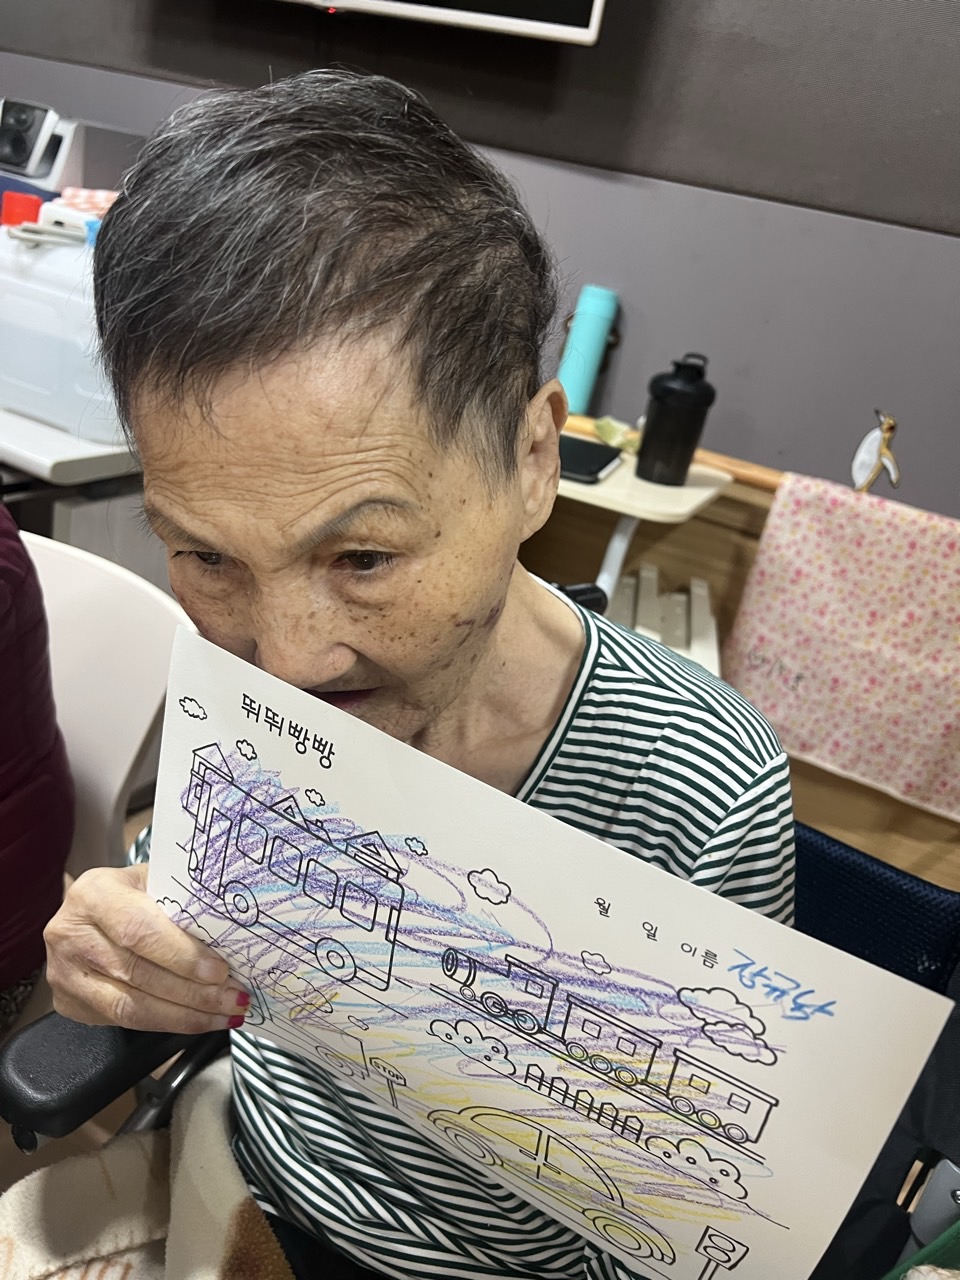 뛰뛰빵빵
월 일 이름 장규남
STOP